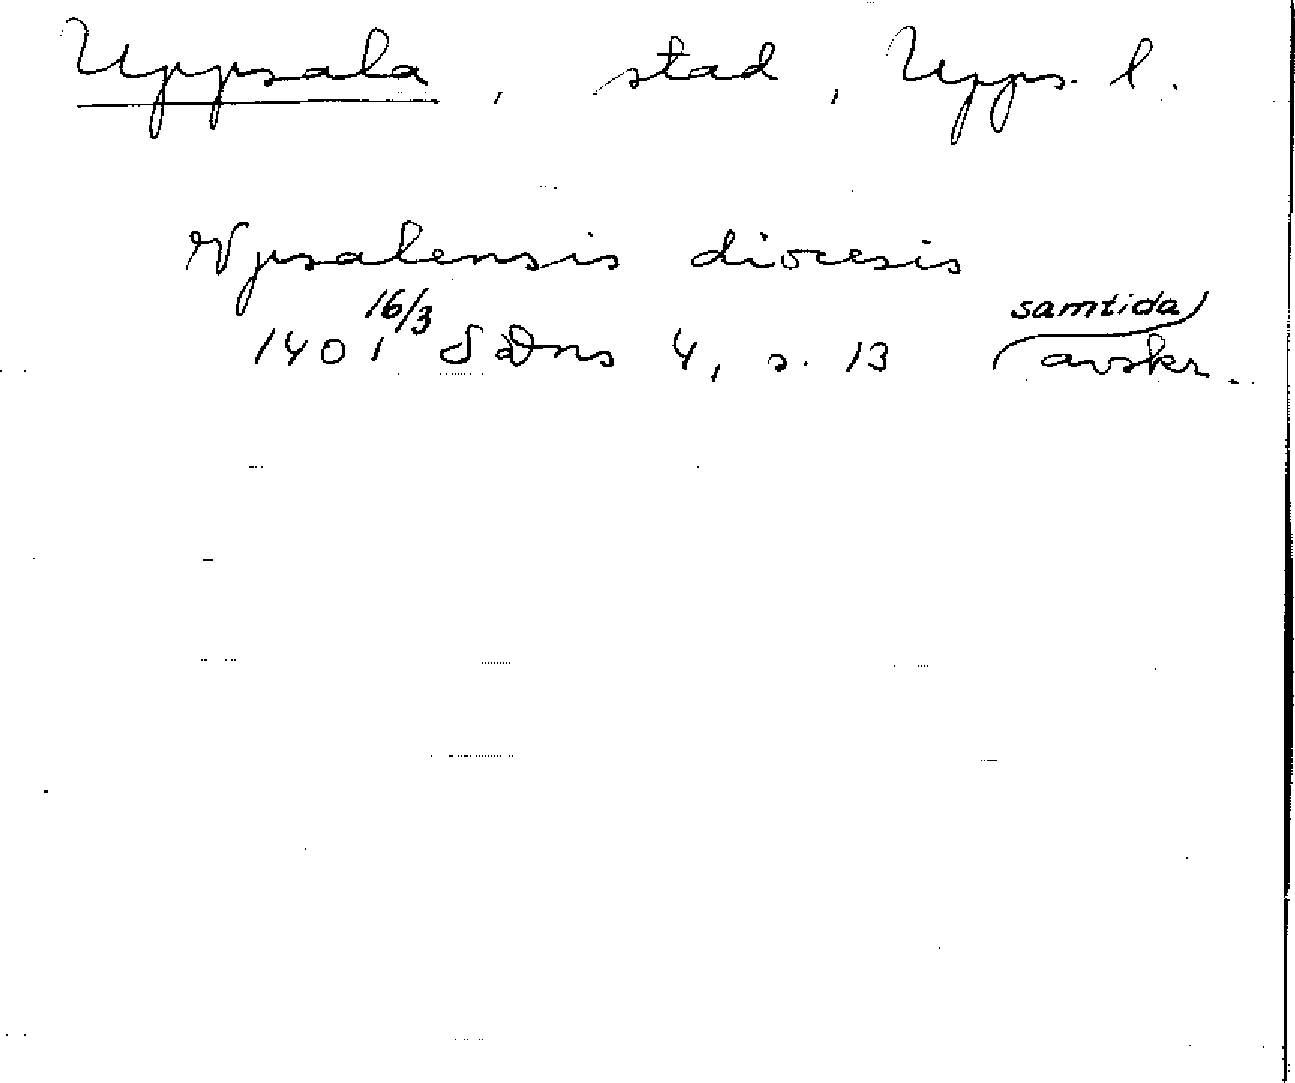 Uppsala, stad, Upps. l.
Vpsalensis diocesis
1401 16/3 SDns 4, s. 13 samtida avskr.